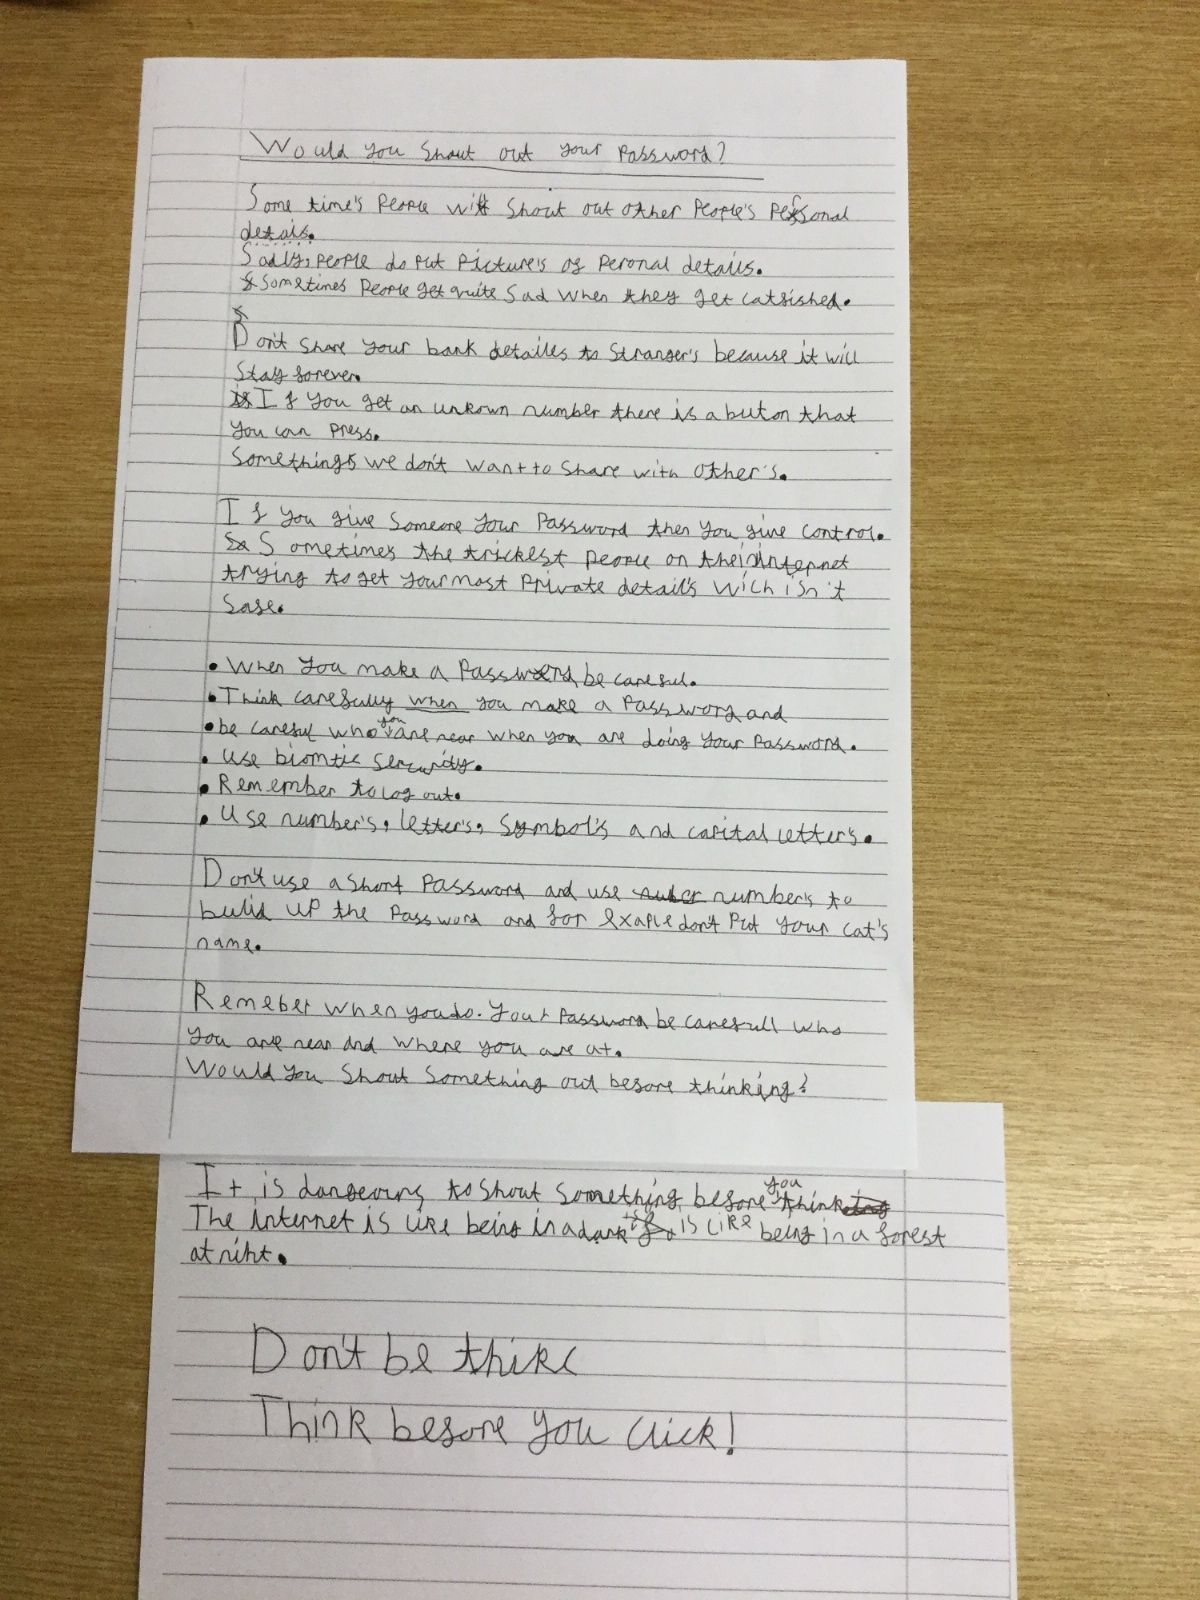 Would you Shout out your Password?
Some time's People will Shout out other People's Personal
detals.
Sadly, People do Put Picture's of Peronal details.
Sometines People get quite Sad when they get catfished.
Don't Share your bank detailes to Stranger's because it will
Stay forever.
If you get an unkown number there is a buton that
you can Press.
Somethings we don't want to Share with other's.
If you give Someone your Password then you give control.
Sometimes the trickest People on the internet
trying to get your most Private detail's wich isn't
safe.
• When you make a Password be careful.
• Think carefully when you make a Password and
• be careful who you are near when you are doing your Password.
• Use biomtic
• Remember to log out.
• Use number's, letter's, Symbol's and capital letter's.
Don't use a short Password and use number's to
build up the Password and for exaple don't Put your cat's
name.
Remeber when you do. your Password be carefull who
you are near and where you are at.
Would you Shout Something out before thinking?
It is dangerous to shout Something before you think
The internet is like being in a dark is like being in a forest
at niht.
Don't be thike
Think before you click!